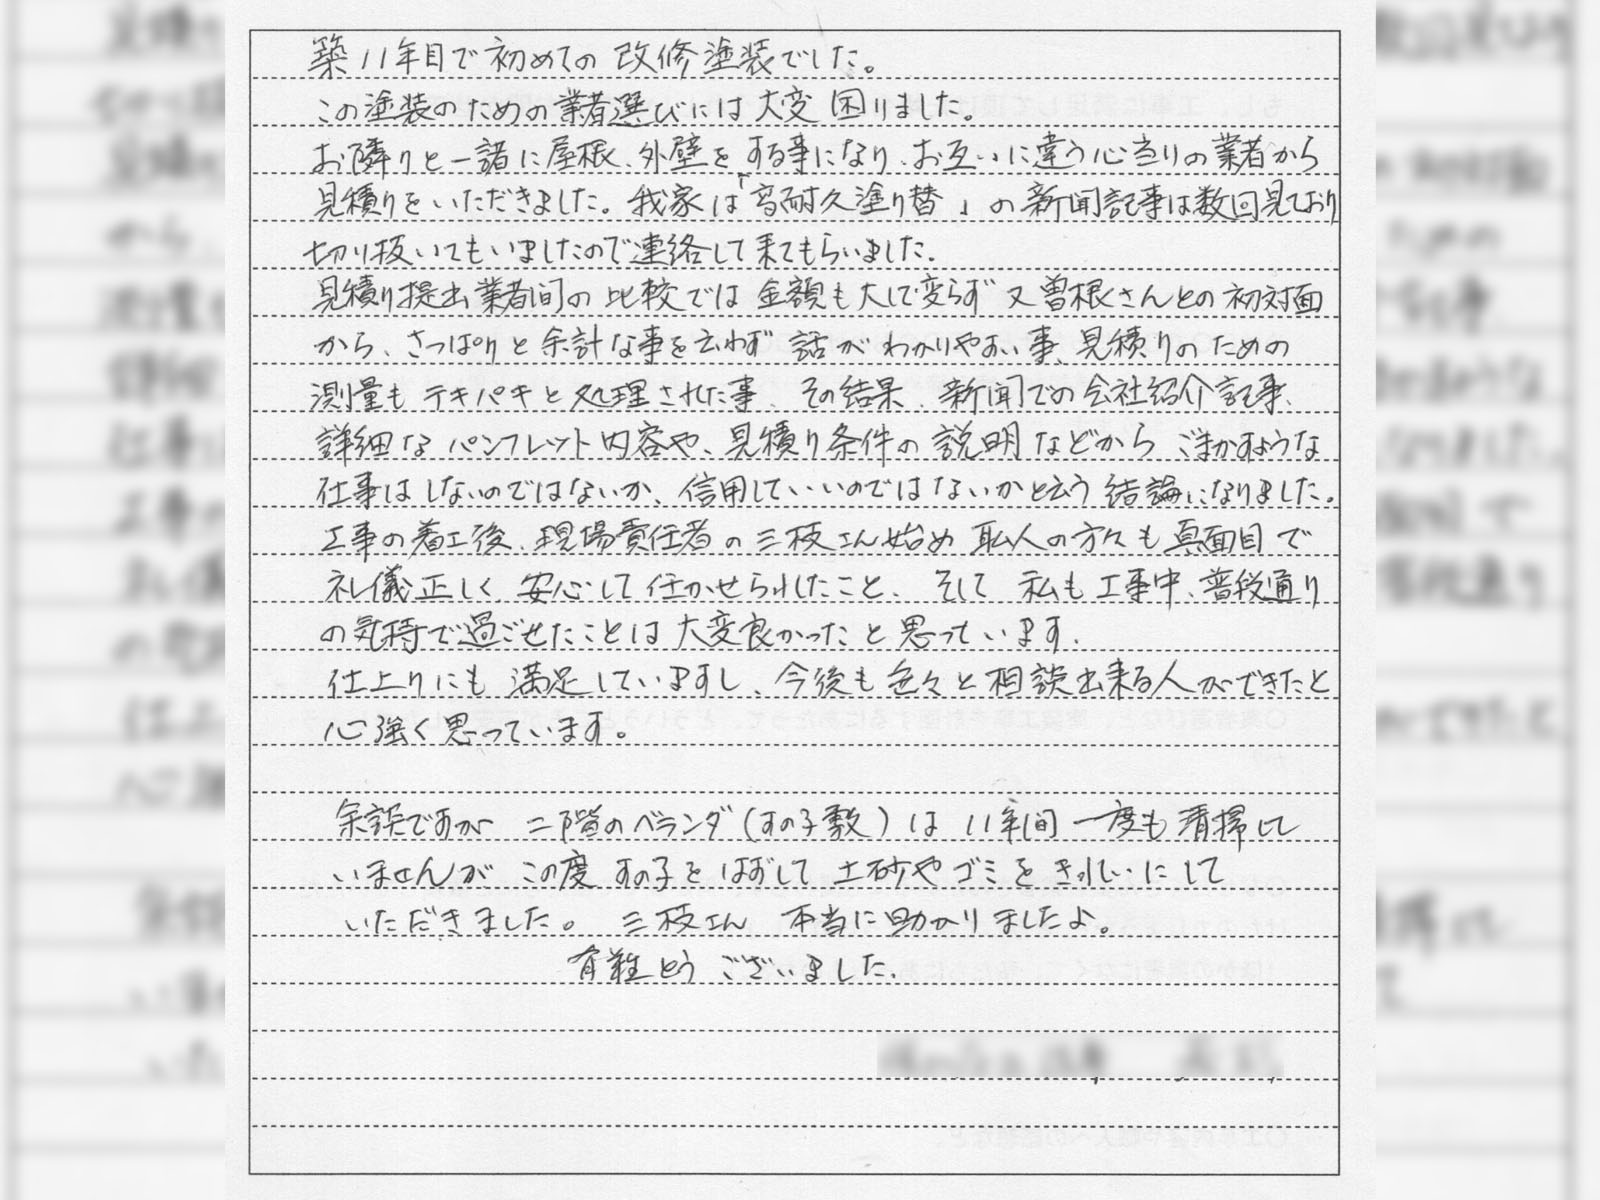 築11年目で初めての改修塗装でした。
この塗装のための業者選びには大変困りました。
お隣りと一諸に屋根、外壁をする事になり、お互いに違う心当りの業者から
見積りをいただきました。我家は「高耐久塗り替」の新聞記事は数回見ており
切り抜いてもいましたので連絡して来てもらいました。
見積り提出業者間の比較では金額も大して変らず又曽根さんとの初対面
から、さっぱりと余計な事を云わず話がわかりやすい事、見積りのための
測量もテキパキと処理された事、その結果、新聞での会社紹介記事、
詳細なパンフレット内容や、見積り条件の説明などからごまかすような
仕事はしないのではないか、信用していいのではないかと云う結論になりました。
工事の着工後、現場責任者の三枝さん始め職人の方々も真面目で
礼儀正しく安心して任かせられたこと、そして私も工事中、普段通り
の気持で過ごせたことは大変良かったと思っています。
仕上りにも満足していますし、今後も色々と相談出来る人ができたと
心強く思っています。
余談ですが二階のベランダ(すの子敷)は11年間一度も清掃して
いませんがこの度すの子をはずして土砂やゴミをきれいにして
いただきました。三枝さん本当に助かりましたよ。
有難とうございました。